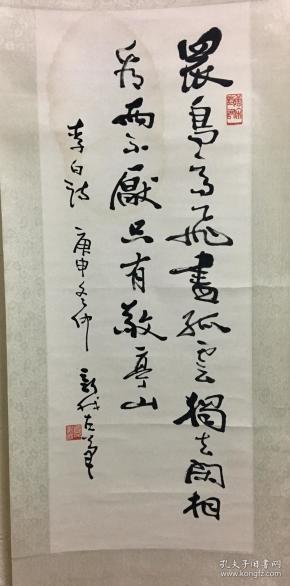 众鸟高飞尽孤雲獨去閑相
看兩不厭只有敬亭山
李白詩
庚申冬仲
孔夫子旧书网